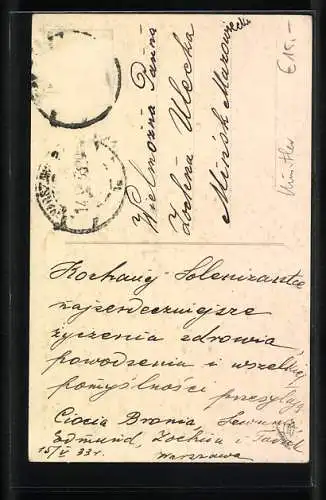 Wielmożna Panna
Zochena Ulecka
Mińsk Mazowiecki
Künstler €15.-
14
Kochanej Solenizantce
najserdeczniejsze
życzenia zdrowia,
powodzenia i wszelkiej
pomyślności przesyłają
Ciocia Bronia,
Edmund, Zochna i Tadek
15/V 33 r. Warszawa